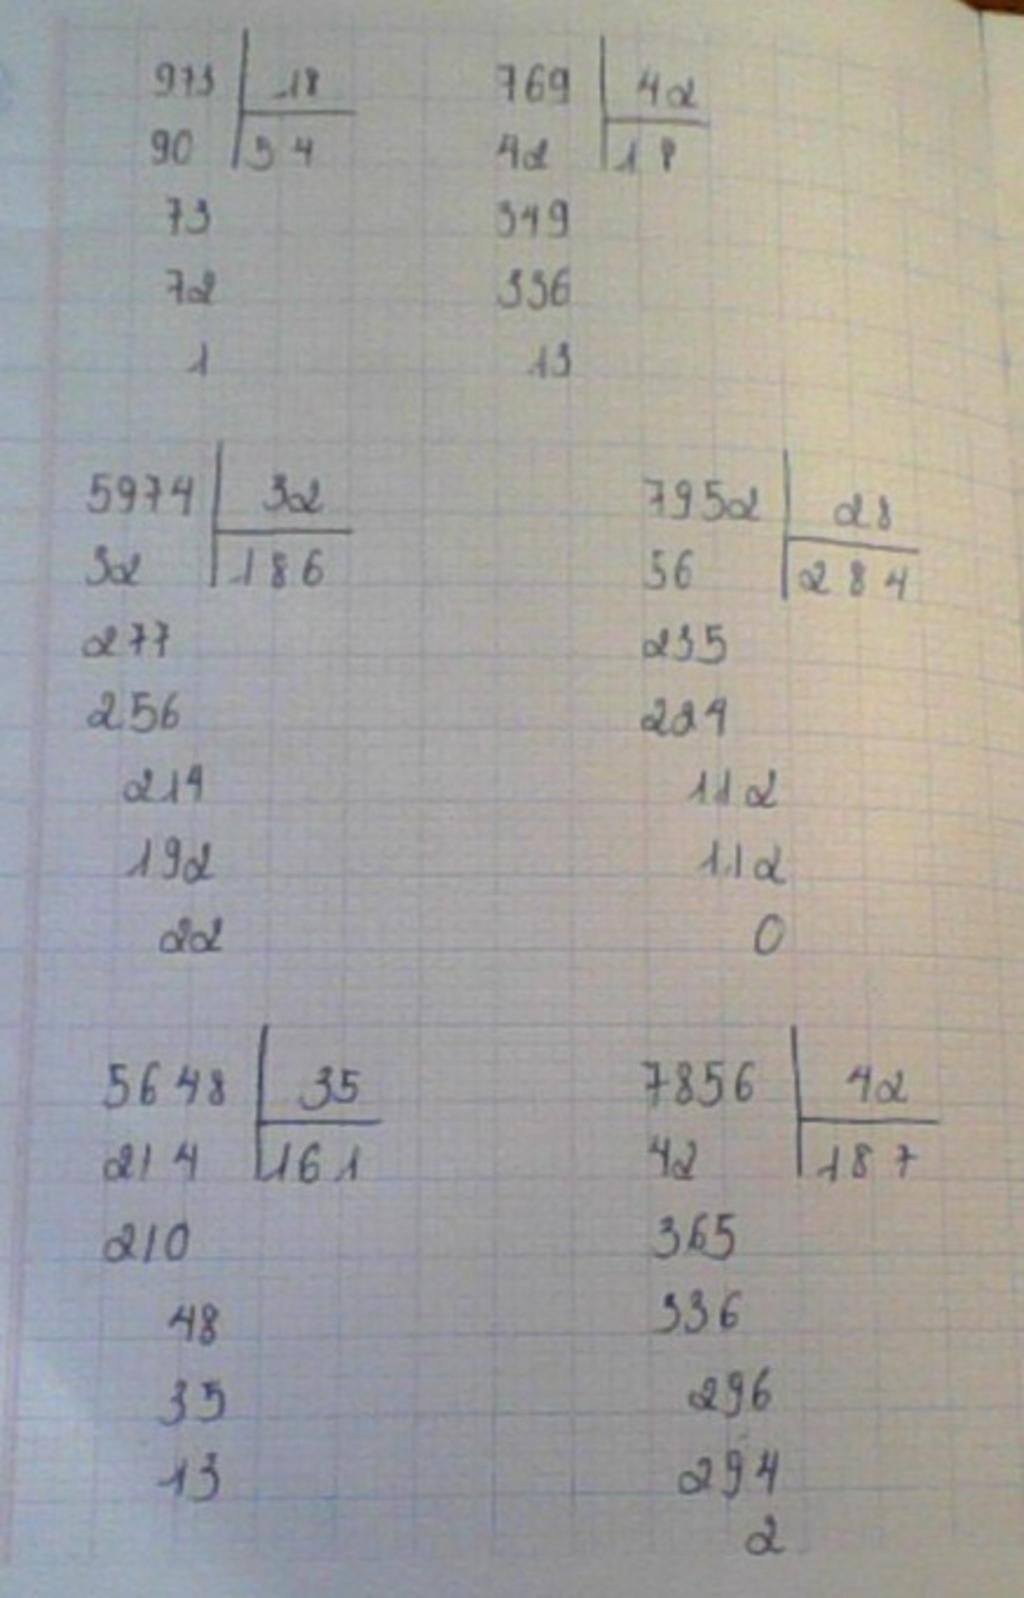 973 18 769 42
90 54 42 18
73 349
72 336
1 13
5974 32 7952 28
32 186 56 284
277 235
256 224
214 112
192 112
22 0
5648 35 7856 42
214 161 42 187
210 365
48 336
35 296
13 294
2